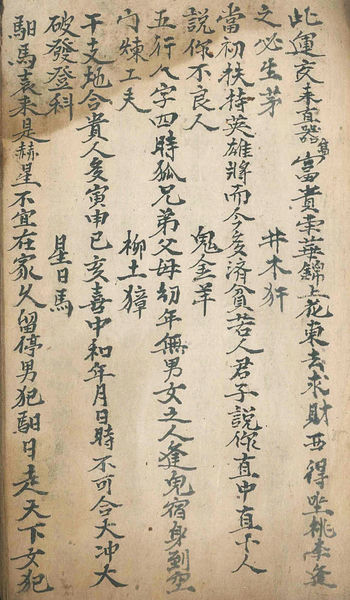 此運交未直器富貴荣華錦上花東去求財西得坐桃李逢
之必生芽　井木犴
當初扶持英雄將而今交济貧苦人君子說你直中直下人
說你不良人　鬼金羊
五行八字四時孤兄弟父母幼年無男女之人逢鬼宿身到空
門煉工夫　柳土獐
干支地合貴人亥寅申巳亥喜中和年月日時不可合大冲大
破發登科　星日馬
駙馬未是赫星不宜在家久留停男犯駙日走天下女犯